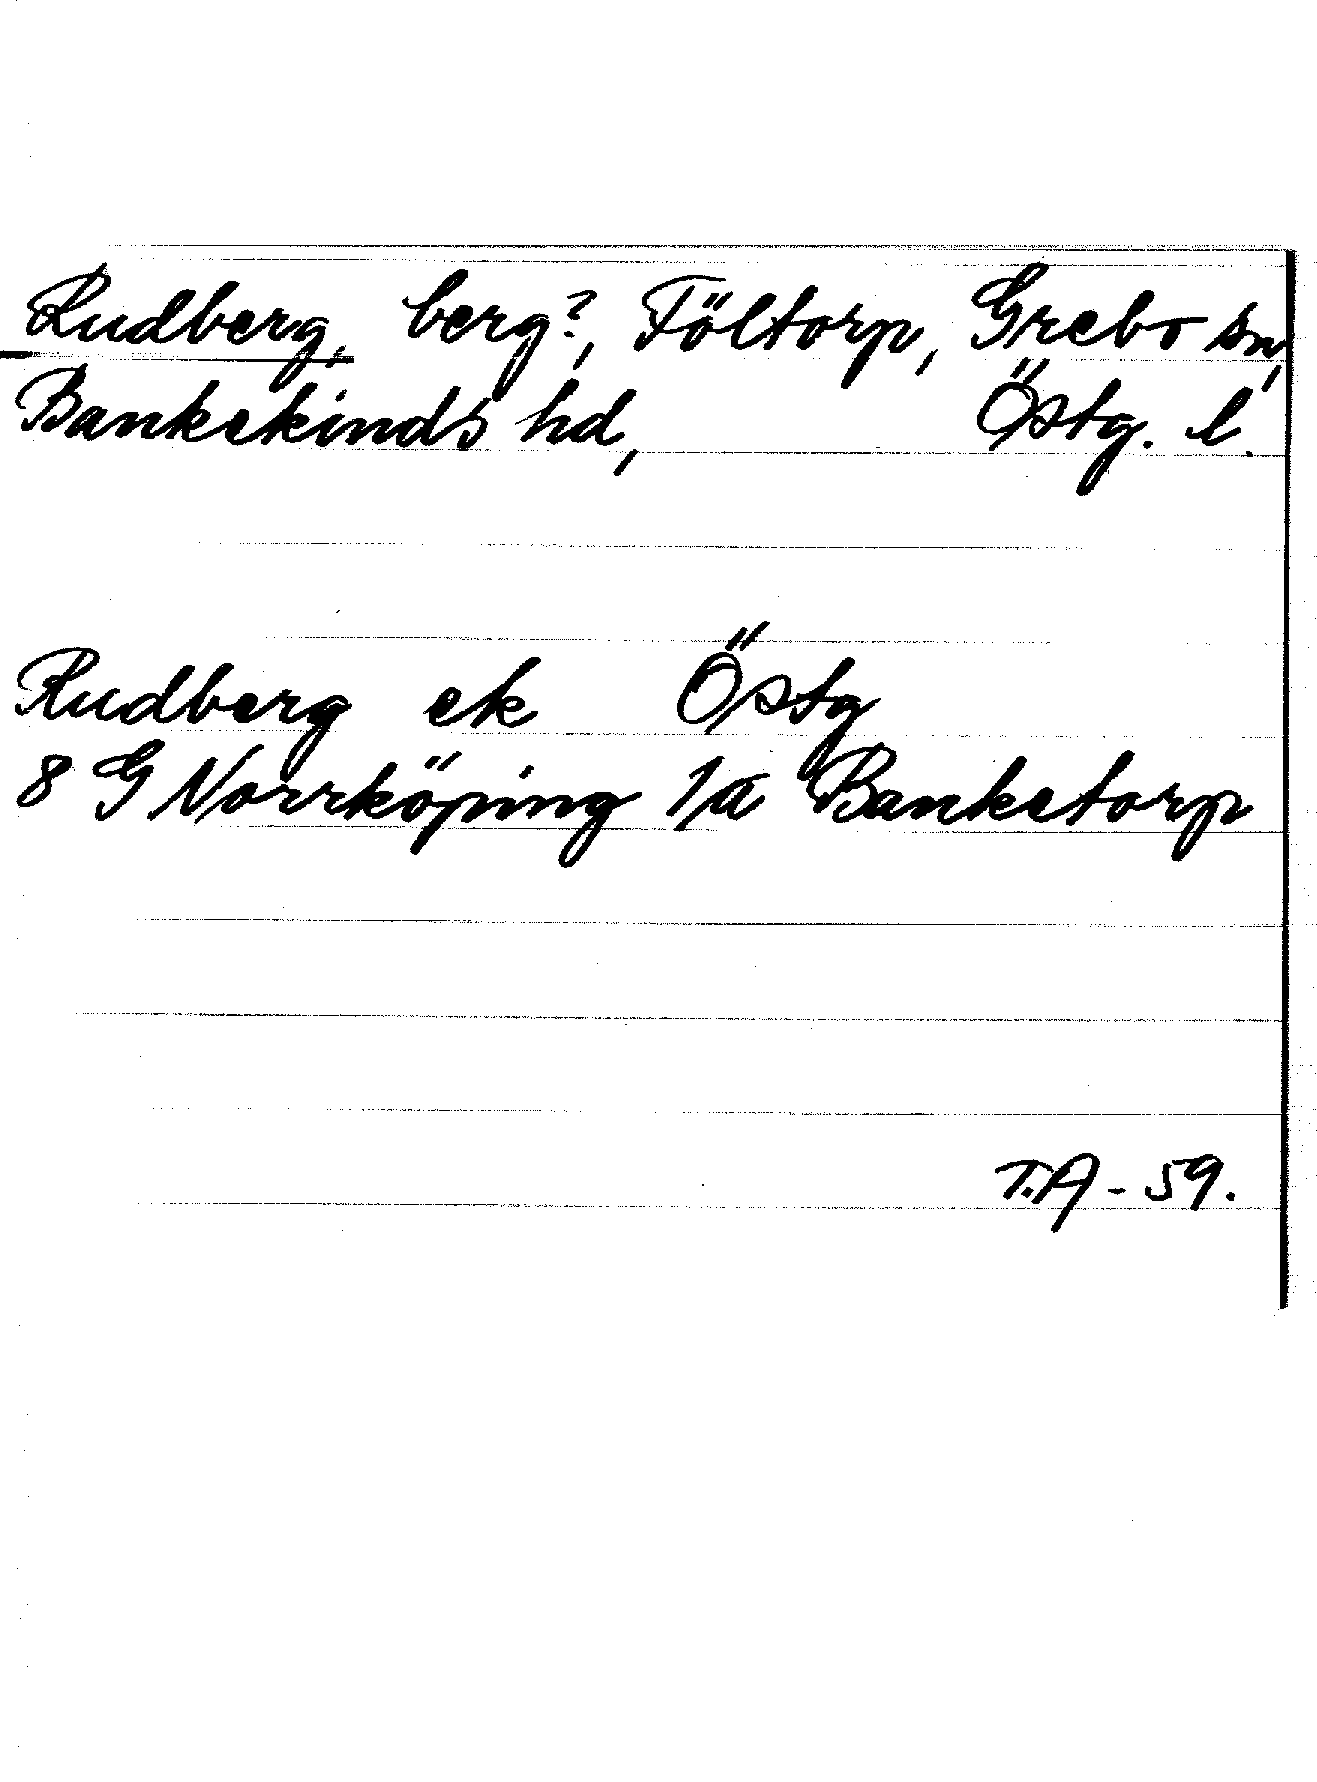 Rudberg, berg?, Föltorp, Grebo sn,
Bankekinds hd, Östg. l.
Rudberg ek Östg
8 G Norrköping 1a Banketorp
T.A - 59.